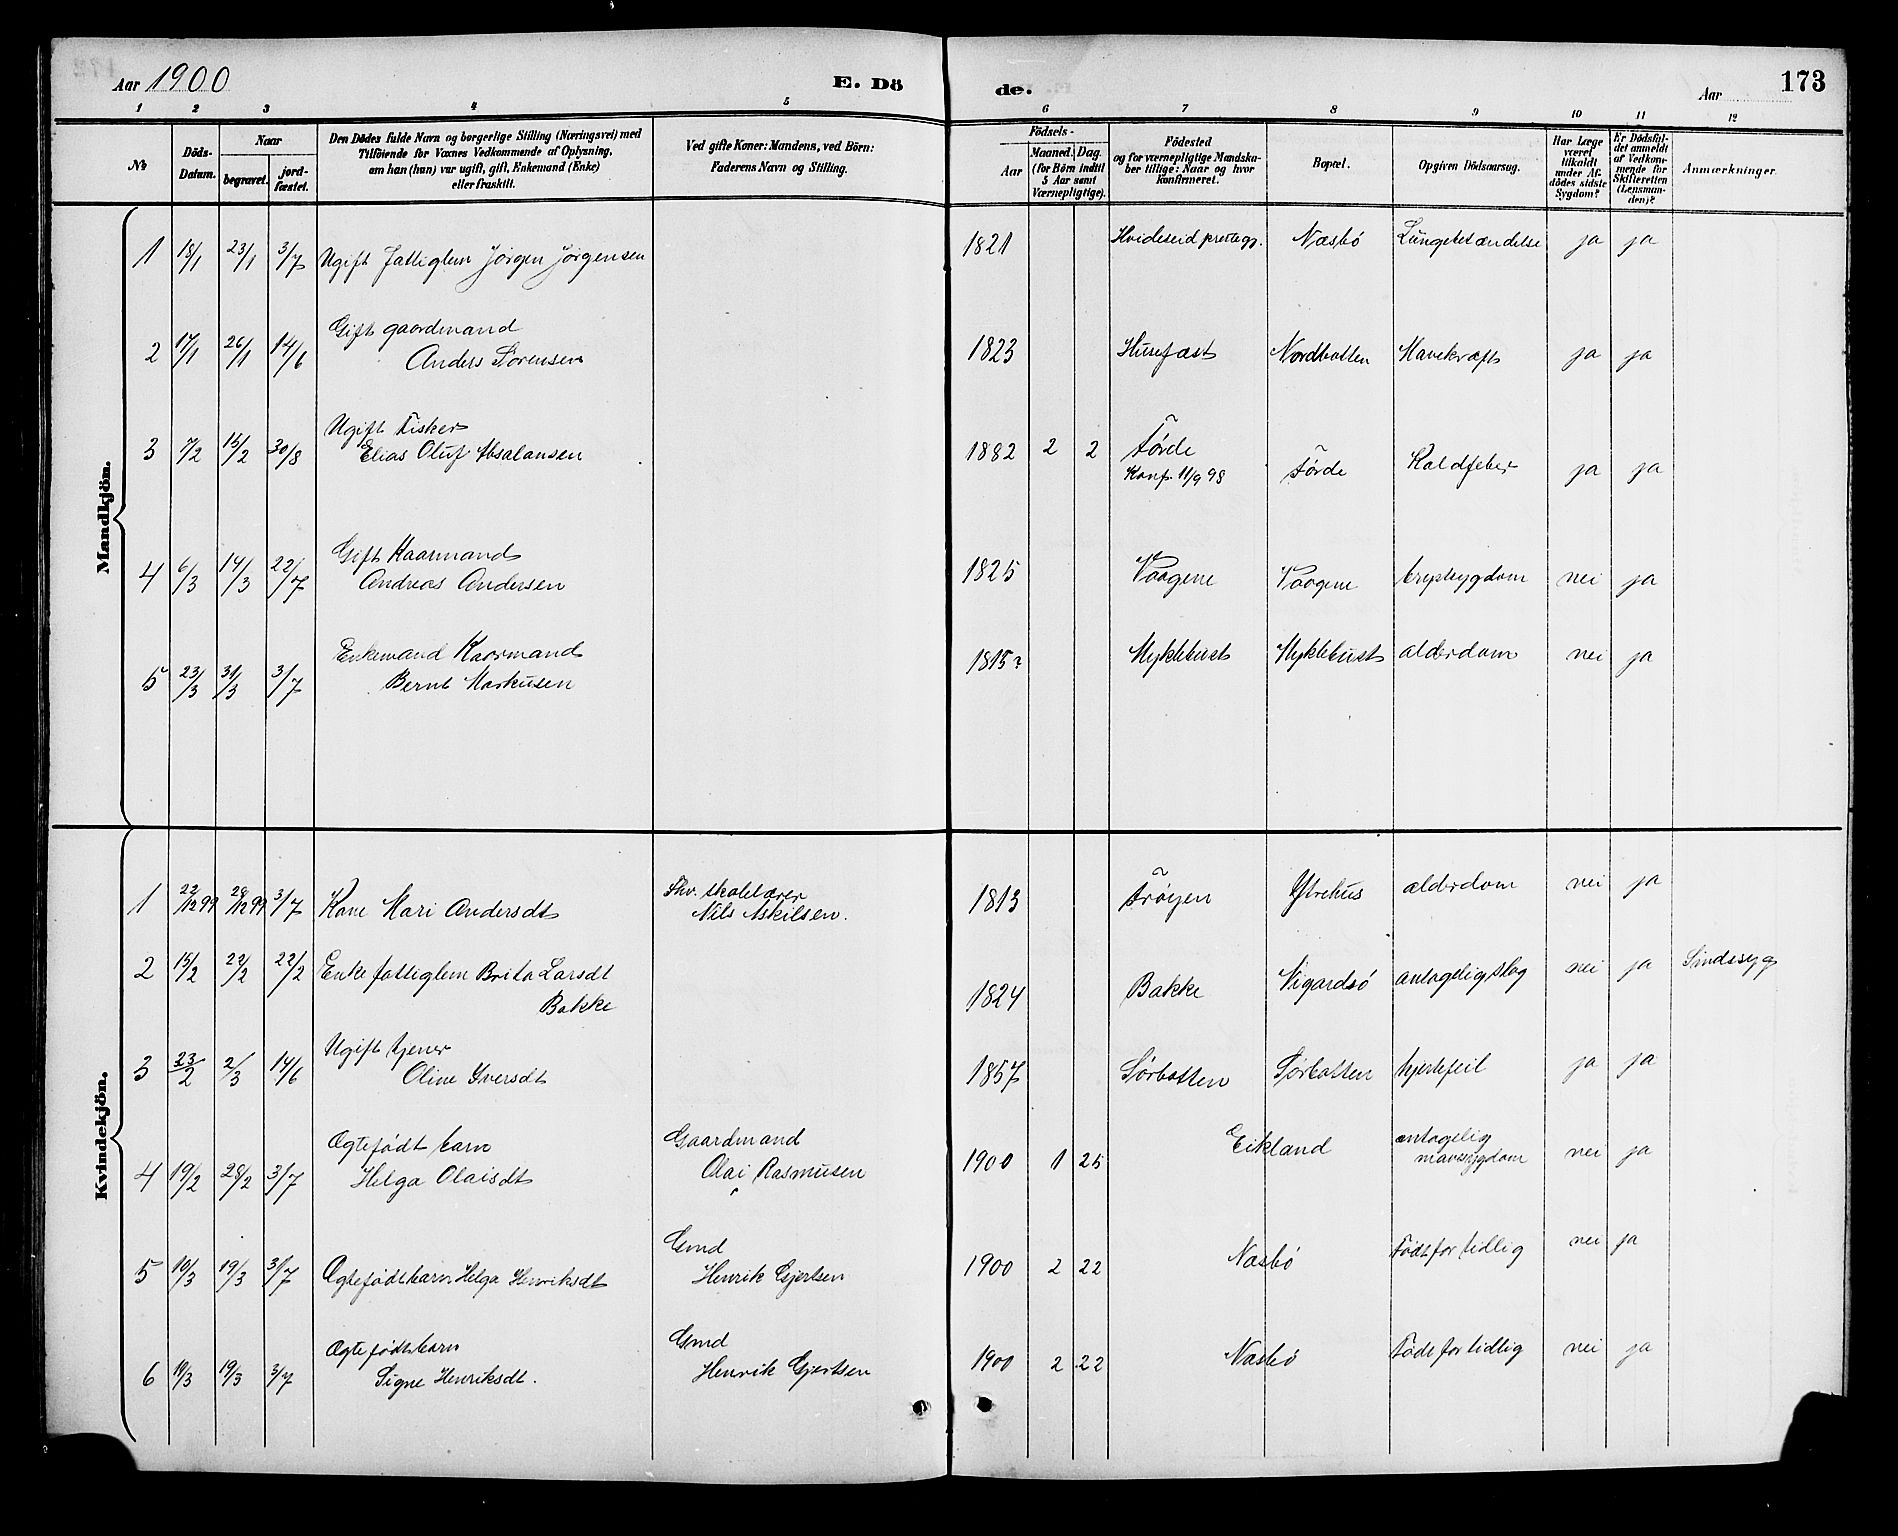 Aar 1900
E. Dö
de.
Aar
173
1 2 3 4 5 6 7 8 9 10 11 12
No
Döds-Datum.
Naar
begravet.
jord-fæstet.
Den Dödes fulde Navn og borgerlige Stilling (Næringsvei) med
Tilföiende for Voxnes Vedkommende af Oplysning,
om han (hun) var ugift, gift, Enkemand (Enke)
eller fraskilt.
Ved gifte Koner: Mandens, ved Börn:
Faderens Navn og Stilling.
Födsels-
Aar
Maaned. Dag.
(for Börn indtil
5 Aar samt
Værnepligtige).
Födested
og for værnepligtige Mandska-
ber tillige: Naar og hvor
konfirmeret.
Bopæl.
Opgiven Dödsaarsag.
Har Læge
været
tilkaldt
under Af-
dödes sidste
Sygdom?
Er Dödsfal-
det anmeldt
af Vedkom-
mende for
Skifteretten
(Lensman-
den)?
Anmærkninger.
Mandkjön.
1 18/1 23/1 3/7 Ugift fattiglem Jörgen Jörgensen 1821 Hvideseid prestegj. Næsbö Lungebetændelse ja ja
2 17/1 26/1 14/6 Gift gaardmand
Anders Sørensen 1823 Husefæst Nordbotten Mavekræft ja ja
3 7/2 15/2 30/8 Ugift Fisker
Elias Oluf Absalonsen 1882 2 2 Førde
Konf. 11/9 98 Førde Koldfeber ja ja
4 6/3 14/3 22/7 Gift Kaarmand
Andreas Andersen 1825 Vaagene Vaagene brystsygdom nei ja
5 23/3 31/3 3/7 Enkemand Kaarmand
Bernt Markusen 1815? Myklebust Myklebust alderdom nei ja
Kvindekjön.
1 22/12 99 28/12 99 3/7 Kone Mari Andersdt Fhv. skolelærer
Nils Askilsen. 1813 Frøyen Ytrehus alderdom nei ja
2 15/2 22/2 22/2 Enke fattiglem Brita Larsdt
Bakke 1824 Bakke Vigardsö antageligslag nei ja Sindssyg
3 23/2 2/3 14/6 Ugift tjener
Oline Iversdt 1857 Sørbotten Sørbotten hjertefeil ja ja
4 19/2 28/2 3/7 Ægtefødt barn
Helga Olaisdt Gaardmand
Olai Rasmusen 1900 1 25 Eikland antagelig
mavesygdom nei ja
5 10/3 19/3 3/7 Ægtefødt barn Helga Henriksdt Gmd
Henrik Gjertsen 1900 2 22 Næsbö Født for tidlig nei ja
6 11/3 19/3 3/7 Ægtefødt barn
Signe Henriksdt. Gmd
Henrik Gjertsen 1900 2 22 Næsbö Født for tidlig nei ja